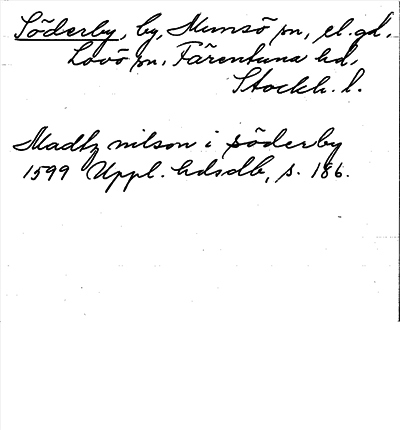 Söderby, by, Munsö sn, el. gd,
Lovö sn, Färentuna hd,
Stockh. l.
Madtz nilson i söderby
1599 Uppl. hdsdb, s. 186.